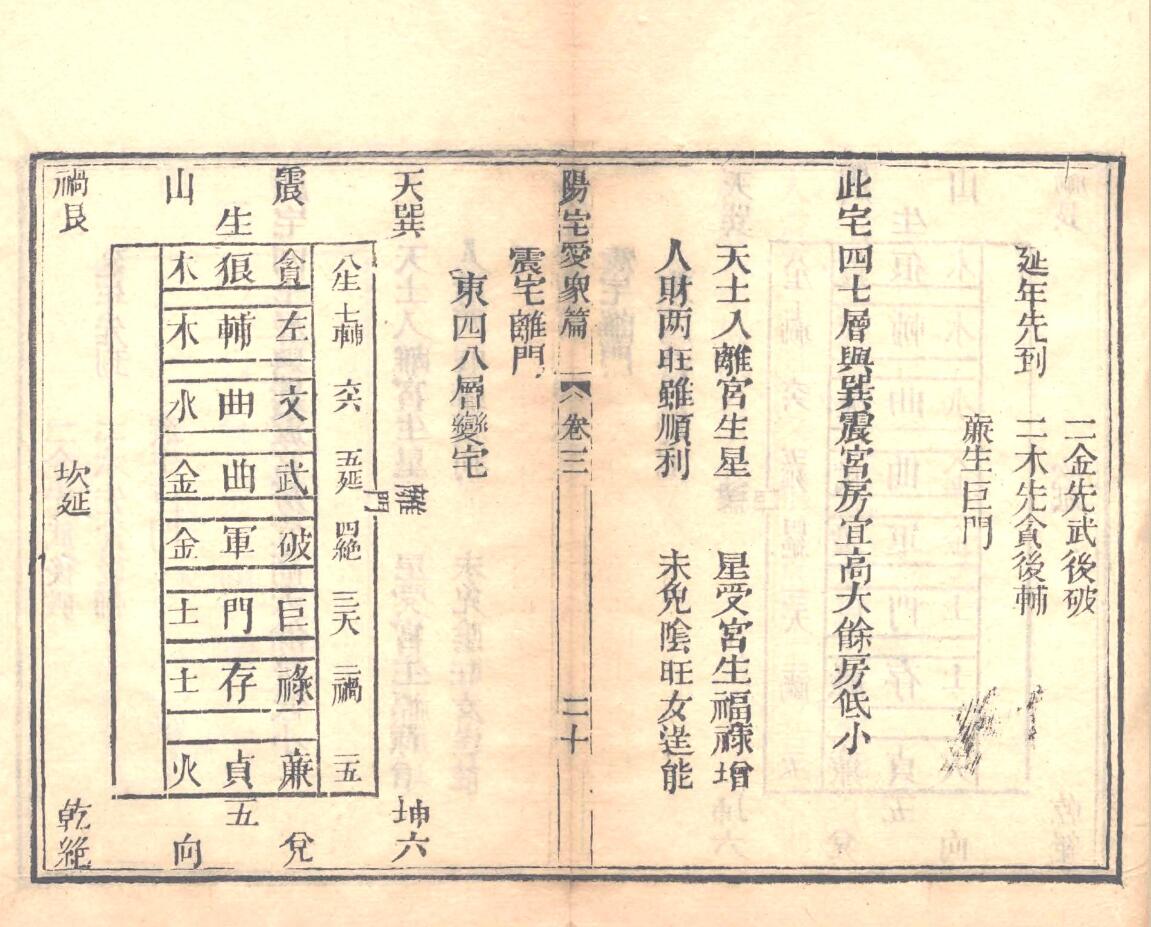 二金先武後破
延年先到 二木先貪後輔
亷生巨門
此宅四七層與巽震宮房宜高大餘房低小
天土入離宮生星 星受宮生福祿增
人財两旺雖順利 未免陰旺女逞能
陽宅愛衆篇 卷三 二十
震宅離門
東四八層變宅
天巽 離門 坤六
八生 七輔 六六 五延 四絶 三天 二禍 一五
震 貪 左 文 武 破 巨 祿 亷 兌
生 狼 輔 曲 曲 軍 門 存 貞 五
山 木 木 水 金 金 土 土 火 向
禍艮 坎延 乾絶